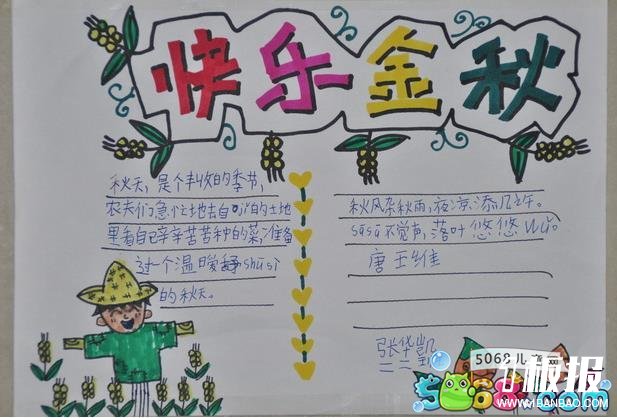 快乐金秋
秋天，是个丰收的季节，
农夫们急忙地去自ji的土地
里看自己辛辛苦苦种的菜，准备
过个温暖舒shūsì
的秋天。
秋风杂秋雨，夜凉添几许。
sūsū不觉声，落叶悠悠wǔ。
唐 王维
张华凯
三
5068儿童网
板报
WWW.41BANBAO.COM